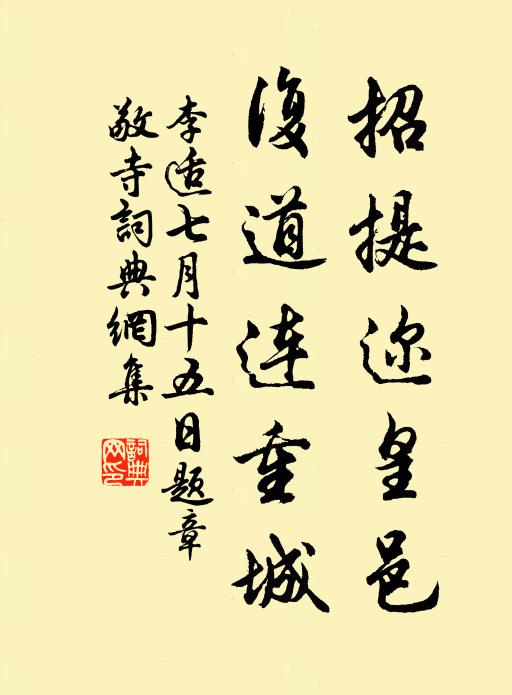 招提迩皇邑
復道連重城
李适七月十五日題章
敬寺詞典網集
詞典
网印